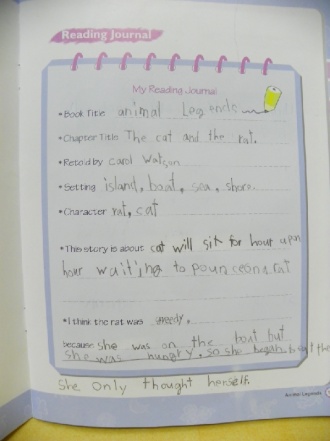 Reading Journal
My Reading Journal
•Book Title animal Legends
•Chapter Title The cat and the rat.
•Retold by carol Watson
•Setting island, boat, sea, shore.
•Character rat, cat
•This story is about cat will sit for hour upon
hour waiting to pounce on a rat
•I think the rat was greedy.
because she was on the boat but
she was hungry, so she began to eat the
She only thought herself.
Animal Legends